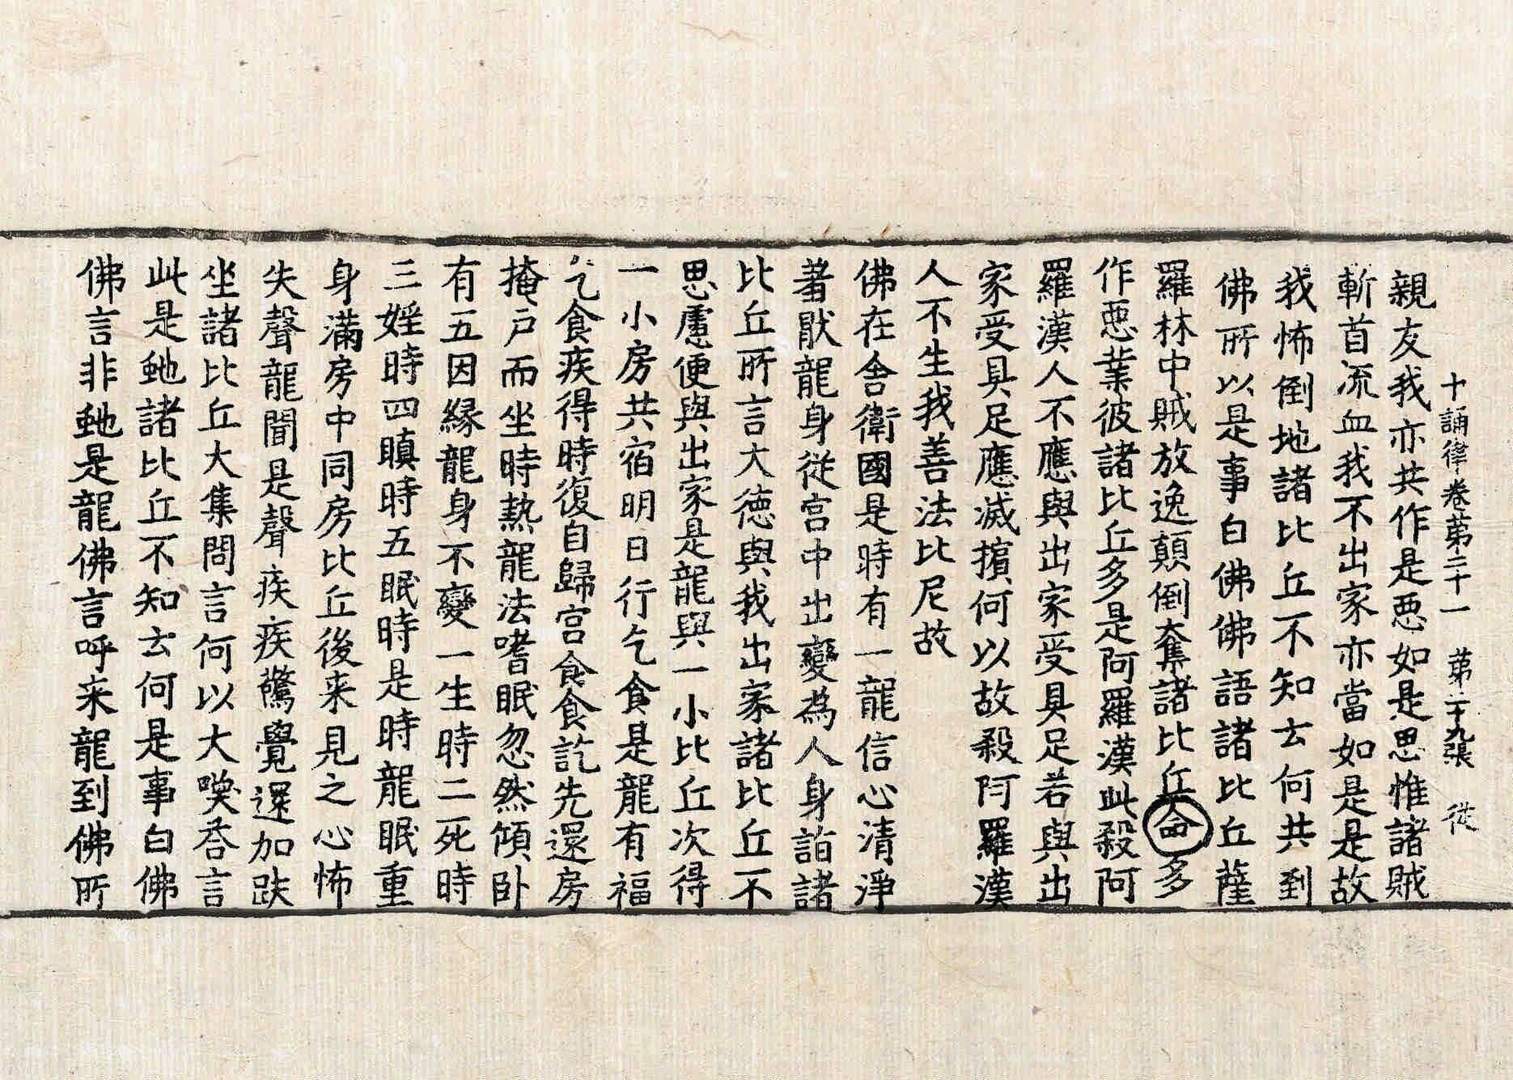 十誦律卷第二十一　第二十九張　從
親友我亦共作是惡如是思惟諸賊
斬首流血我不出家亦當如是是故
我怖倒地諸比丘不知云何共到
佛所以是事白佛佛語諸比丘薩
羅林中賊放逸顛倒奪諸比丘命多
作惡業彼諸比丘多是阿羅漢此殺阿
羅漢人不應與出家受具足若與出
家受具足應滅擯何以故殺阿羅漢
人不生我善法比尼故
佛在舍衛國是時有一龍信心清淨
著猒龍身從宮中出變為人身詣諸
比丘所言大德與我出家諸比丘不
思慮便與出家是龍與一小比丘次得
一小房共宿明日行乞食是龍有福
乞食疾得時復自歸宮食食訖先還房
掩戶而坐時熱龍法嗜眠忽然傾臥
有五因緣龍身不變一生時二死時
三婬時四瞋時五眠時是時龍眠重
身滿房中同房比丘後来見之心怖
失聲龍聞是聲疾疾驚覺還加趺
坐諸比丘大集問言何以大喚荅言
此是虵諸比丘不知云何是事白佛
佛言非虵是龍佛言呼来龍到佛所